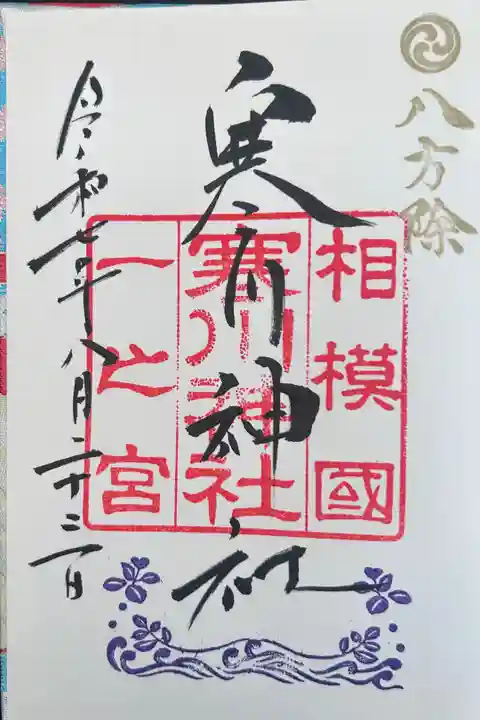 八方除
寒川神社
相模國
寒川神社
一之宮
令和七年八月二十三日